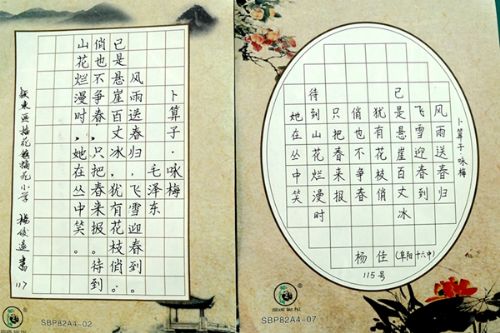 卜算子·咏梅
毛泽东
风雨送春归，飞雪迎春到。
已是悬崖百丈冰，犹有花枝俏。
俏也不争春，只把春来报。待到
山花烂漫时，她在丛中笑。
插花小学 杨 书
117
SBP82A4-02
卜算子·咏梅
风雨送春归
飞雪迎春到
已是悬崖百丈冰
犹有花枝俏
俏也不争春
只把春来报
待到山花烂漫时
她在丛中笑
杨佳（阜阳十六中）
115号
SBP82A4-07